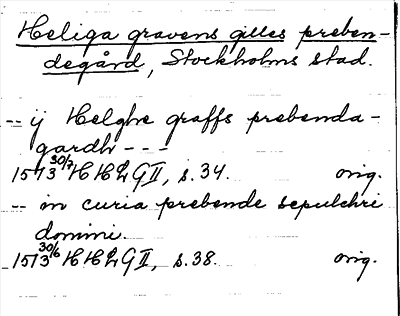 Heliga gravens gilles preben-
degård, Stockholms stad.
-- ij Helghe graffs prebenda-
gardh ---
1513 30/7 HHLGII, s. 34. orig.
-- in curia prebende sepulchri
domini.
1513 30/6 HHLGII, s. 38. orig.